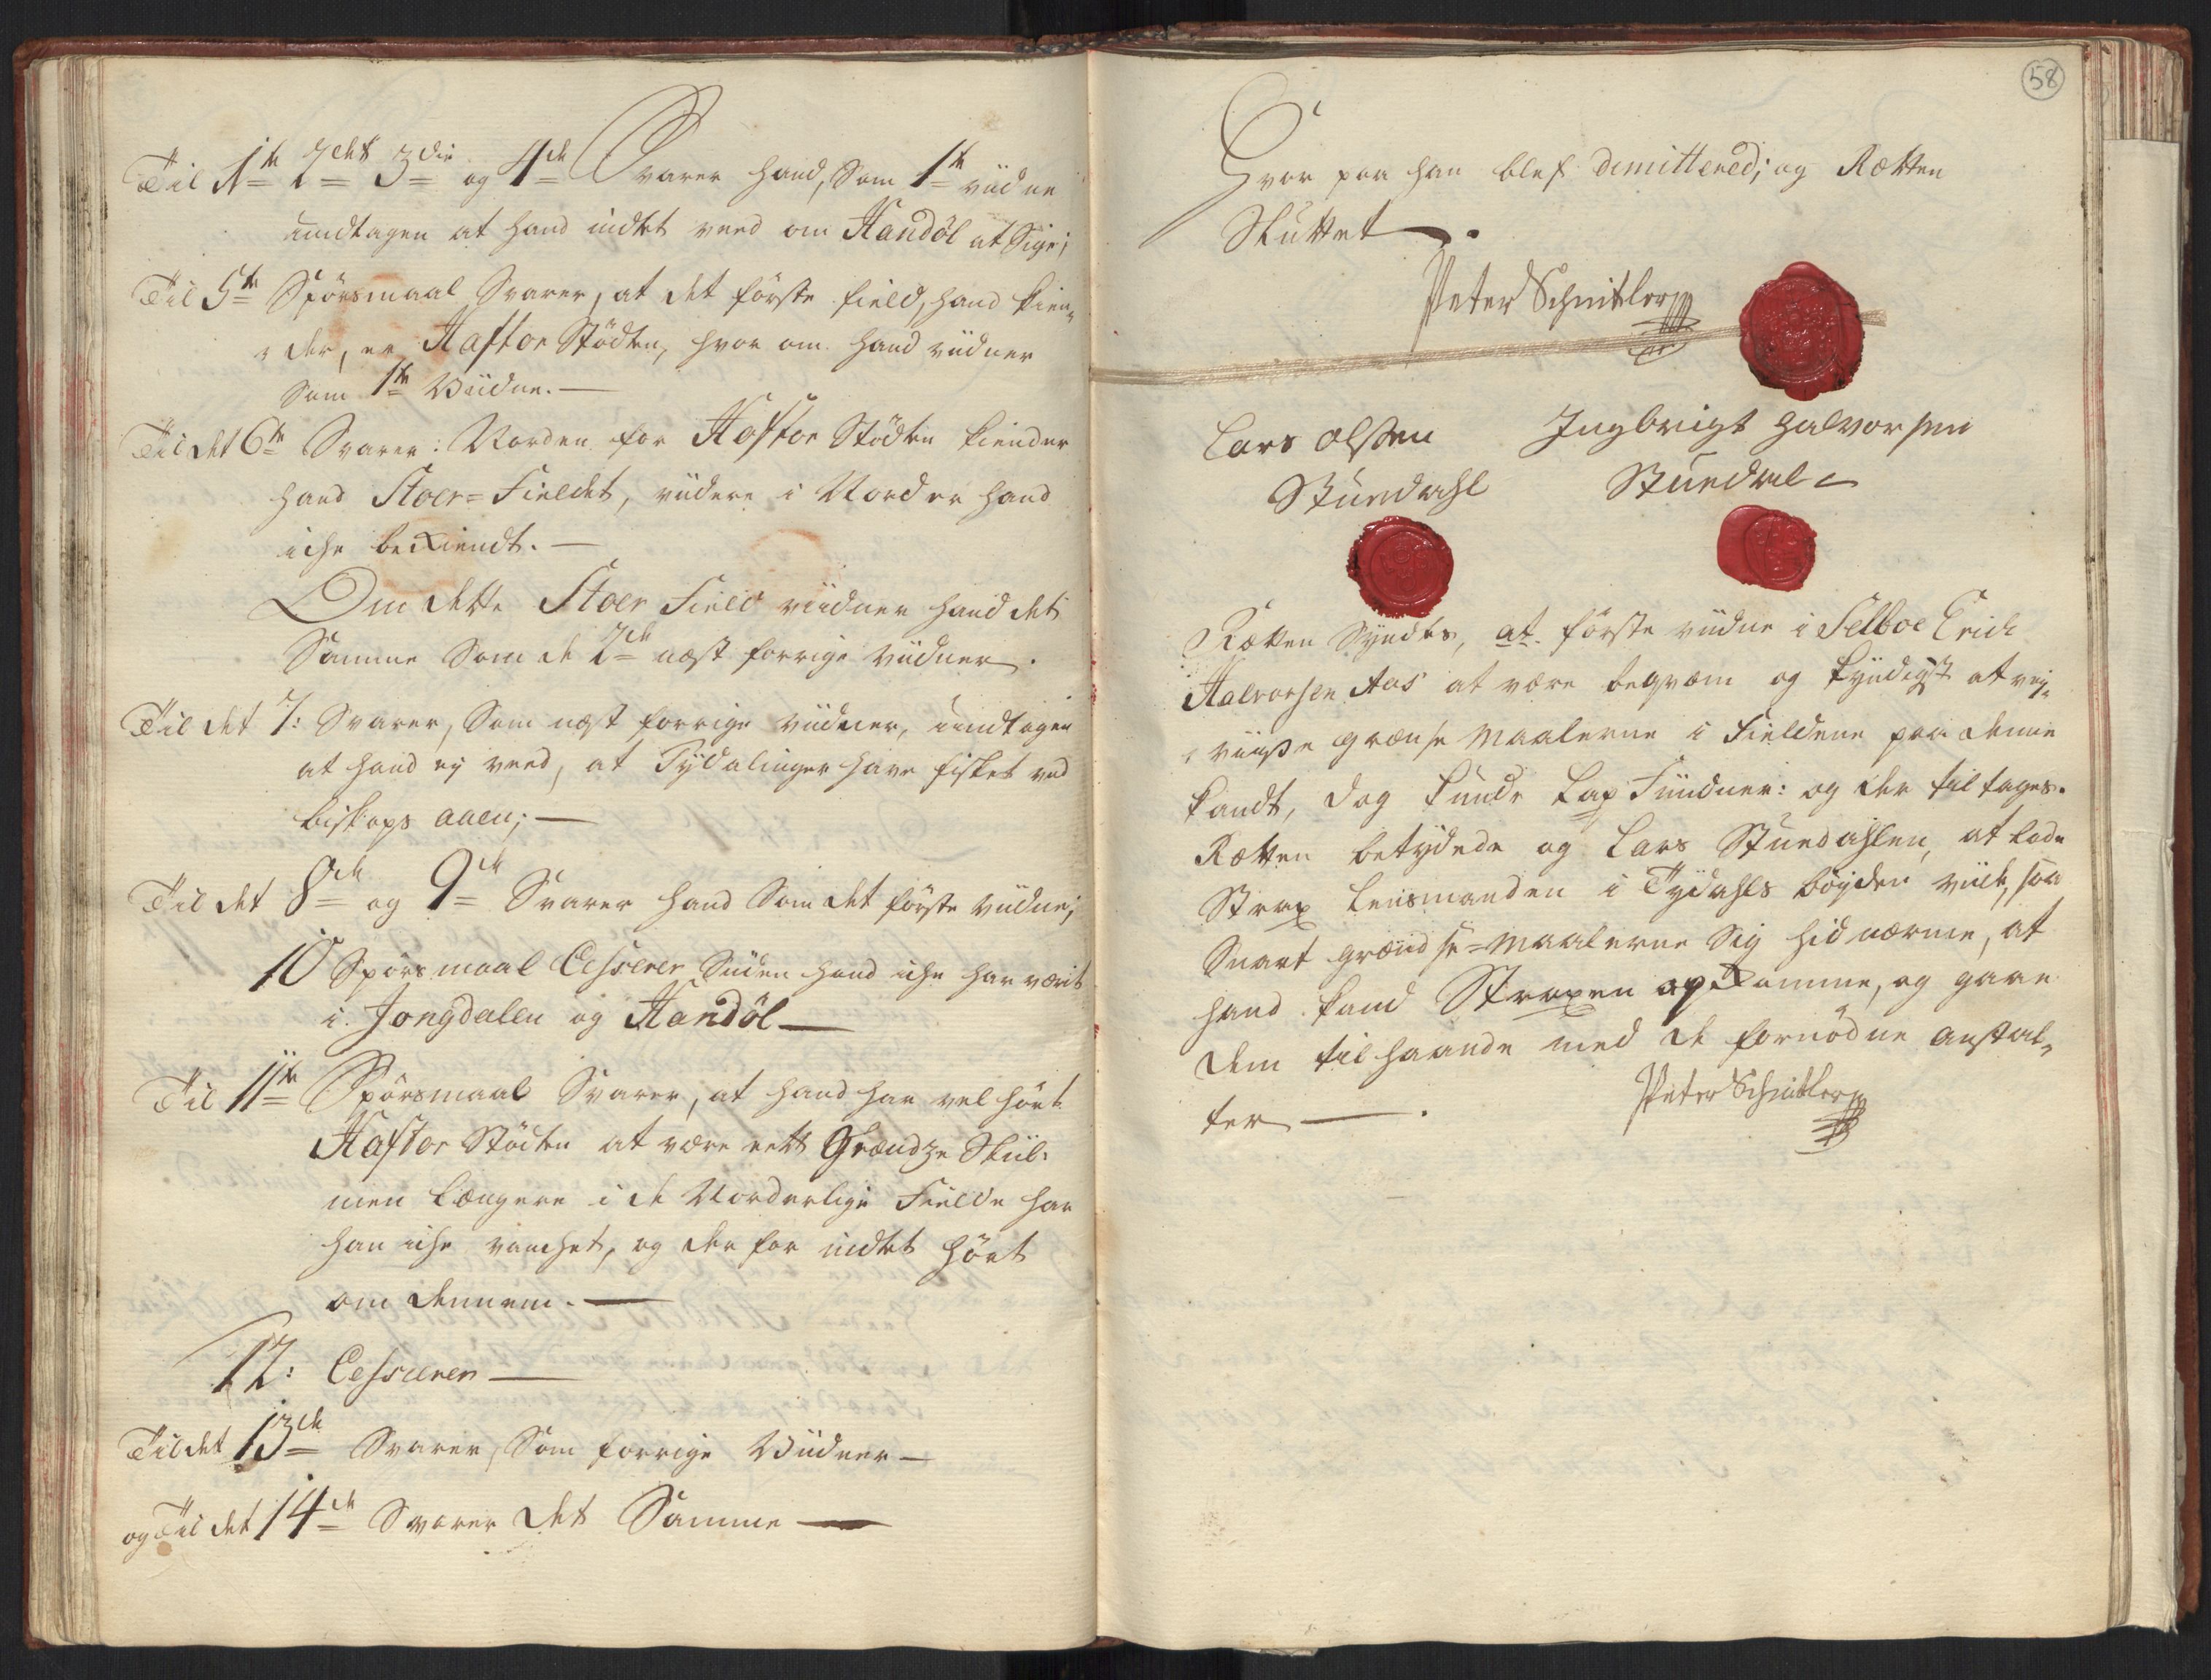 Til 1te 2det 3die og 4de Svarer hand, Som 1te viidne
undtagen at hand indtet veed om Handöl at Sige;
Til 5te Spörsmaal Svarer, at det förste field, hand kien-
der, er Haftor Stödten, hvor om hand viidner
Som 1te Viidne. —
Til det 6te Svarer: Norden for Haftor Stödten kiender
hand Stoer=Fieldet, viidere i Nord er hand
iche bekiendt. —
Om dette Stoer Field viidner hand det
Samme Som de 2de næst forrige viidner.
Til det 7: Svarer, Som næst forrige viidner, undtagen
at hand ej veed, at Tydalinger have fisket ved
biskops aaen; —
Til det 8de og 9de Svarer hand Som det förste viidne;
10 Spörsmaal Cesserer Siiden hand iche har værit
i Jongdalen og Handöl —
Til 11te Spörsmaal Svarer, at hand har vel hört
Haftor Stödten at være rett Grændze Skiil:
men længere i de Norderlige Fielde har
han iche vanchet, og der for indtet hört
om dennem. —
12: Cesserer —
Til det 13de Svarer, Som forrige Viidner —
og Til det 14de Svarer det Samme —
58
Hvor paa han blef demittered; og Rætten
Sluttet.
Peter Schnitler
Lars olssen Ingbrigt halvorsen
Stuedahl Stuedal
Rætten Syndtes, at förste viidne i Selboe Erich
Halvorsen Aas at være beqvæm og kyndigst at vej-
viisse grænse Maalerne i Fieldene paa denne
kandt, dog kunde Lap Finder: og der til tages.
Rætten betydede og Lars Stuedahlen, at lade
Strax Lensmanden i Tydahls böyden viide, saa
Snart grændse=Maalerne Sig hid nærme, at
hand kand Straxen op komme, og gaae
dem til haande med de fornödne anstal-
ter — .
Peter Schnitler